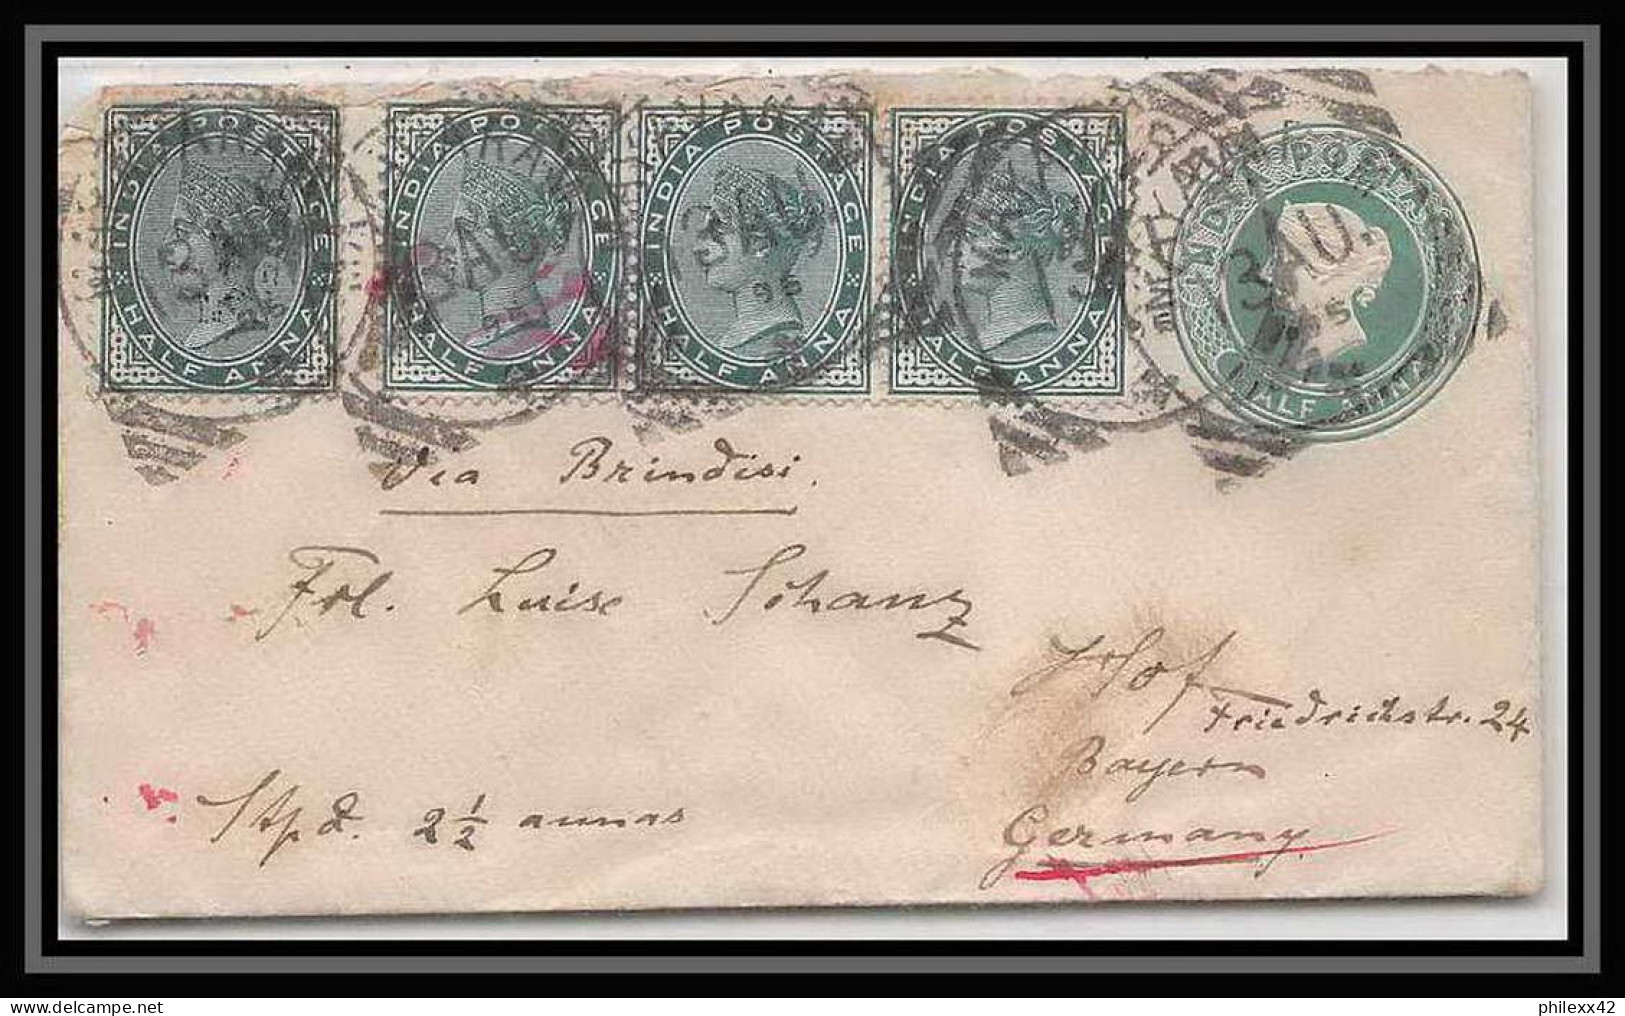 INDIA POSTAGE
HALF ANNA
INDIA POSTAGE
HALF ANNA
INDIA POSTAGE
HALF ANNA
INDIA POSTAGE
HALF ANNA
INDIA POSTAGE
HALF ANNA
3 AU.
95
Via Brindisi.
Frl. Luise Schanz
Hof
Friedrichstr. 24
Bayern
Germany.
Stpd. 2½ annas
philexx42